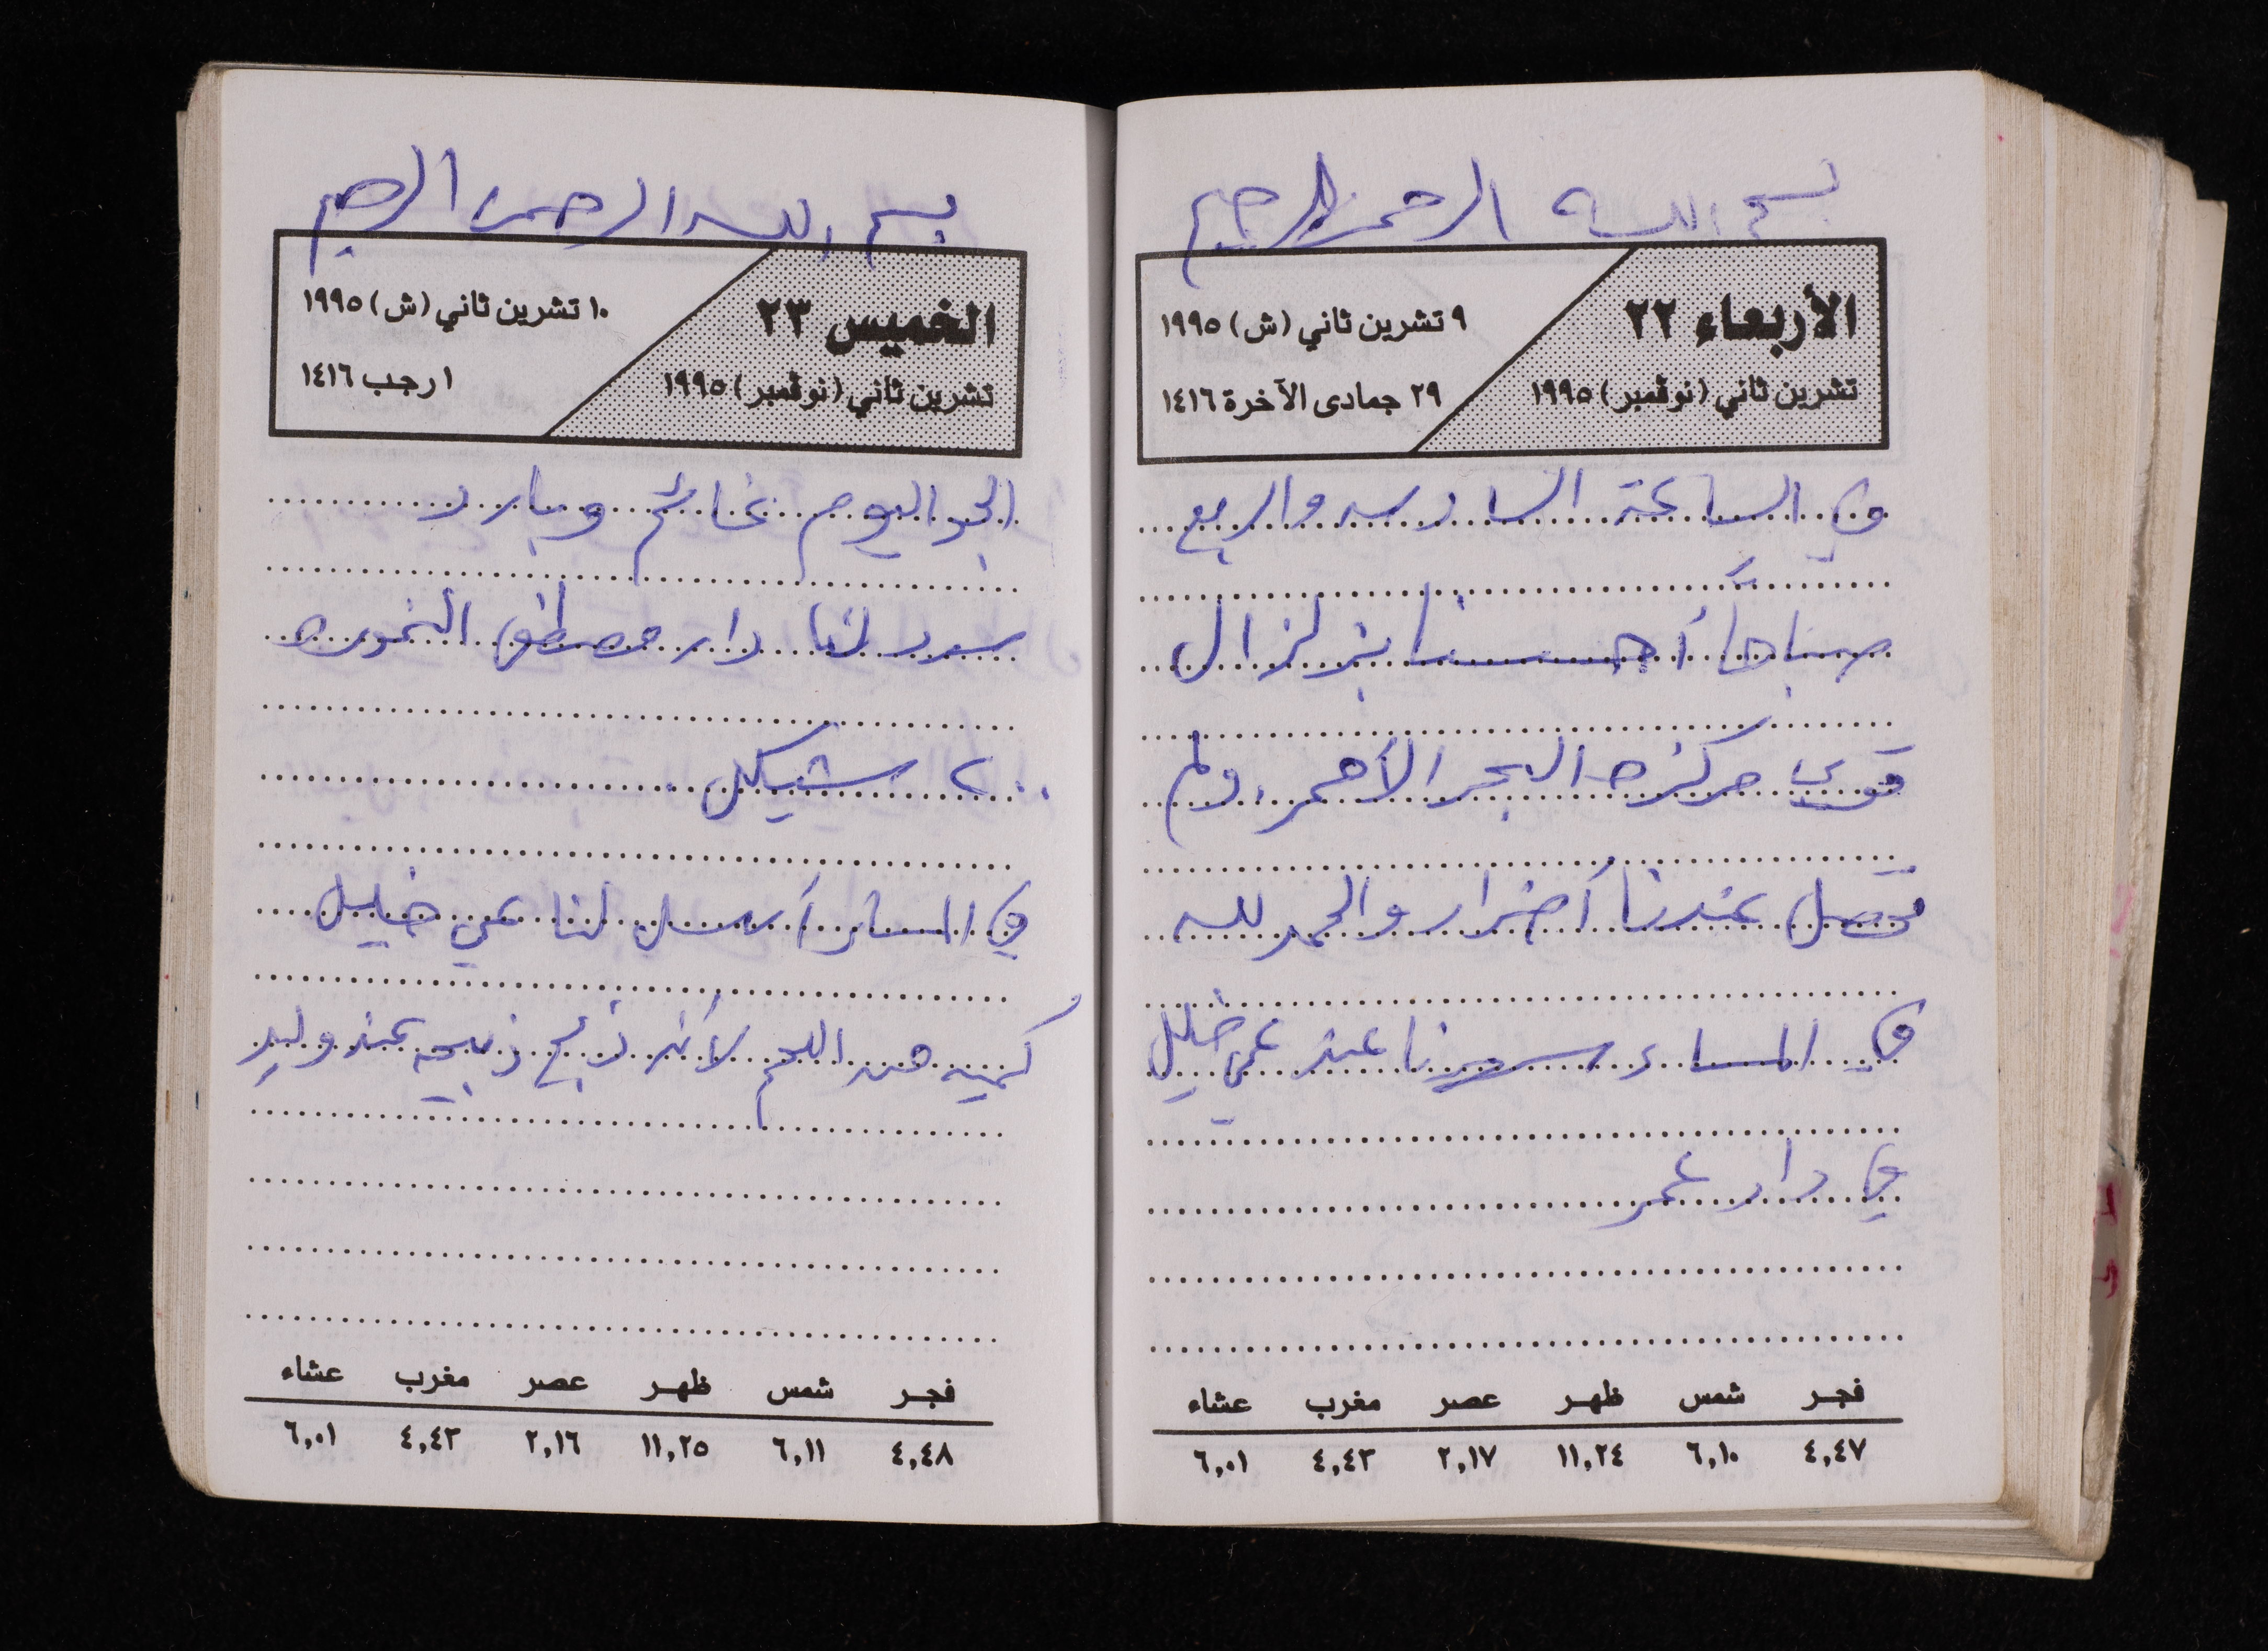 بسم الله الرحمن الرحيم
الأربعاء ٢٢
تشرين ثاني (نوڤمبر) ١٩٩٥
٩ تشرين ثاني (ش) ١٩٩٥
٢٩ جمادى الآخرة ١٤١٦
في الساعة السادسه والربع
صباحاً أحسسنا بزلزال
قوي مركزه البحر الأحمر، ولم
تحصل عندنا أضرار والحمد لله
في المساء سهرنا عند عمي خليل
في دار عمر
فجر شمس ظهر عصر مغرب عشاء
٤,٤٧ ٦,١٠ ١١,٢٤ ٢,١٧ ٤,٤٣ ٦,٠١
بسم الله الرحمن الرحيم
الخميس ٢٣
تشرين ثاني (نوڤمبر) ١٩٩٥
١٠ تشرين ثاني (ش) ١٩٩٥
١ رجب ١٤١٦
الجو اليوم غائم وبارد
سدد لنا دار مصطفى
٢٠٠ شيكل
في المساء أرسل لنا عمي خليل
كميه من اللحم لأنه ذبح ذبيحه عند وليد
فجر شمس ظهر عصر مغرب عشاء
٤,٤٨ ٦,١١ ١١,٢٥ ٢,١٦ ٤,٤٣ ٦,٠١